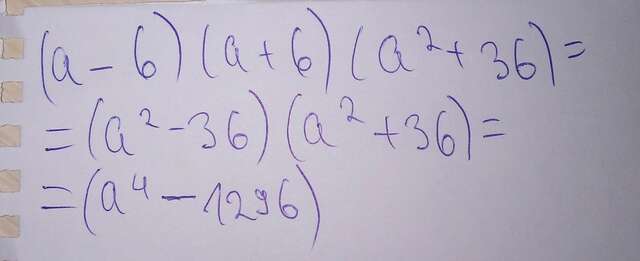 (a - 6) (a + 6) (a² + 36) =
= (a² - 36) (a² + 36) =
= (a⁴ - 1296)